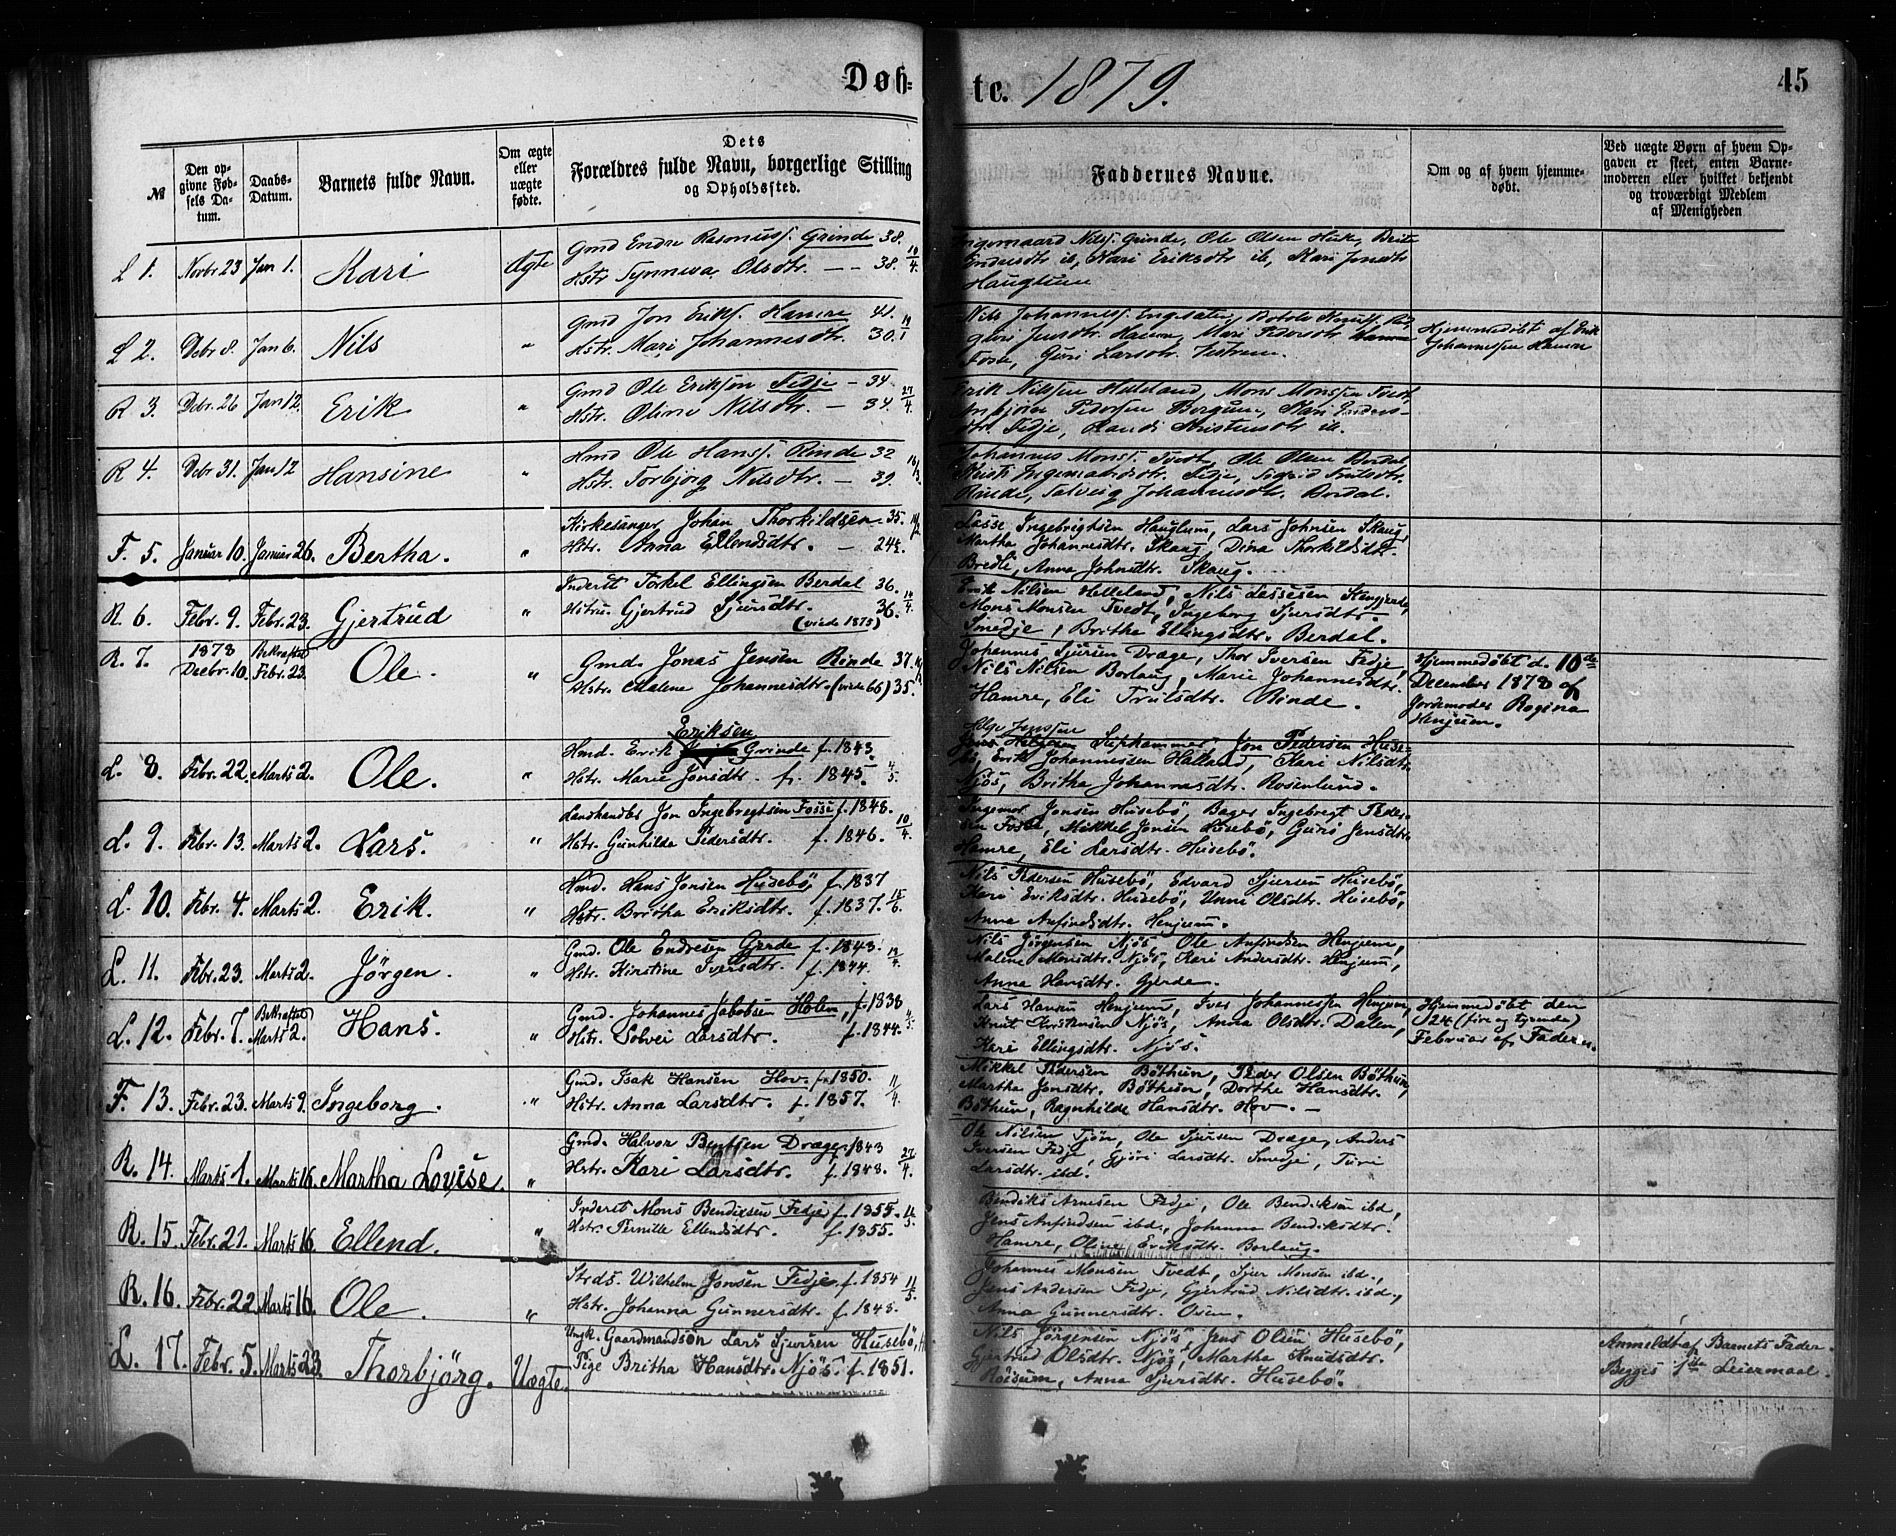 Døb=
te. 1879.
45
№
Den opgivne Fødsels Datum.
Daabs-Datum.
Barnets fulde Navn.
Om ægte eller uægte fødte.
Dets Forældres fulde Navn, borgerlige Stilling og Opholdssted.
Faddernes Navne.
Om og af hvem hjemmedøbt.
Ved uægte Børn af hvem Opgaven er skeet, enten Barnemoderen eller hvilket bekjendt og troværdigt Medlem af Menigheden
L 1. Novbr. 23 Jan 1. Kari Ægte
Gmd Endre Rasmuss. Grinde 38.
Hstr Synneva Olsdtr. — 38. 10/4
Ingemaard Nilss. Grinde, Ole Olsen
Endresdtr ib, Kari Eriksdtr ib, Kari Jonsdtr
Hauglum
L 2. Debr 8. Jan 6. Nils "
Gmd Jon Eriks. Hamre 41.
Hstr. Mari Johannesdtr. 30.
Nils Johanness. Engesæter,
Guri Jensdtr. Hamre, Mari Pedersdtr
Fosse, Guri Larsdtr.
Hjemmedøbt af Erik
Johannessen Hamre
R 3. Debr. 26 Jan 12. Erik "
Gmd Ole Eriksen Fedje — 34
Hstr. Oline Nilsdtr. — 34. 27/4
Erik Nilssen Helleland, Mons Monssen Tvedt
Ansjøn Pedersen Borgum, Kari Endres-
dtr. Fedje, Randi Kristensdtr ib.
R 4. Debr 31. Jan 12 Hansine "
Hmd Ole Hanss. Rinde 32
Hstr. Torbjørg Nilsdtr. — 39.
Johannes Monss. Tvedt, Ole Olsen Berdal
Kristi Ingemaardsdtr. Fedje, Sigrid Trulsdtr.
Rinde, Solveig Johannesdtr. Berdal.
F. 5. Januar 10. Januar 26. Bertha. "
Kirkesanger Johan Thorkildsen 35.
Hstr. Anna Ellendsdtr. — 24½.
Lasse Ingebrigtsen Hauglum, Lars Johnsen Skaug,
Martha Johannesdtr. Skaug, Dina Thorkildsdtr.
Bredle, Anna Johnsdtr. Skaug.
R. 6. Febr. 9. Febr. 23. Gjertrud "
Inderst Torkel Ellingsen Berdal 36.
Hstru. Gjertrud Sjursdtr. 36. 14/4
(viede 1875)
Erik Nilsen Helleland, Nils Lassesen
Mons Monsen Tvedt, Ingeborg Sjursdtr.
Smedje, Britha Ellingsdtr. Berdal.
R. 7. 1878 Decbr. 10. Bekræftet Febr. 23. Ole. "
Gmd. Jonas Jensen Rinde 37.
Hstr. Malene Johannesdtr. (viede 65) 35.
Johannes Sjursen Dræge, Thor Iversen Fedje,
Nils Nilsen Borlaug, Marie Johannesdtr.
Hamre, Eli Trulsdtr. Rinde.
Hjemmedøbt d. 10de
December 1878 af
Jordemoder Regina
Henjum.
L. 8. Febr. 22. Marts 2. Ole. "
Eriksen
Hmd. Erik Grinde f. 1843
Hstr. Marie Jonsdtr. f. 1845. 4/5
Helge Jenssen
Jens Helgesen Sjøhammer, Jon Pedersen Huse-
bö, Erik Johannessen Halland, Kari Nilsdtr.
Njös, Britha Johannesdtr. Rosenlund.
L. 9. Febr. 13. Marts 2. Lars. "
Landhandler Jon Ingebregtsen Fosse f. 1848.
Hstr. Gunhilde Pedersdtr. f. 1846. 10/4
Ingemar Jonsen Husebö, Bager Ingebregt Peder-
sen Fosse, Mikkel Jonsen Husebö, Guri Jensdtr.
Hamre, Eli Larsdtr. Husebö.
L. 10. Febr. 4. Marts 2. Erik. "
Hmd. Hans Jonsen Husebö, f. 1837
Hstr. Britha Eriksdtr. f. 1837. 15/6
Nils Pedersen Husebö, Edvard Sjursen Husebö,
Kari Eriksdtr. Husebö, Unni Olsdtr. Husebö,
Anna Anfindsdtr. Henjum.
L. 11. Febr. 23. Marts 2. Jörgen. "
Gmd. Ole Endresen Gjerde f. 1843.
Hstr. Kirstine Iversdtr. f. 1844.
Nils Jörgensen Njös, Ole Anfindsen Henjum,
Malene Monsdtr. Njös, Kari Andersdtr. Henjum,
Anna Hansdtr. Gjerde.
L. 12. Febr. 7. Bekræftet Marts 2. Hans. "
Gmd. Johannes Jakobsen Holen, f. 1838
Hstr. Solvei Larsdtr. f. 1844.
Lars Hansen Henjum, Iver Johannessen Henjum,
Knut Kristensen Njös, Anna Olsdtr. Dalen,
Kari Ellingsdtr. Njös.
Hjemmedøbt den
24 (fire og tyvende)
Februar af Faderen.
F. 13. Febr. 23. Marts 9. Ingeborg. "
Gmd. Isak Hansen Hov. f. 1850.
Hstr. Anna Larsdtr. f. 1857. 11/4
Mikkel Pedersen Böthun, Peder Olsen Böthun,
Martha Jonsdtr. Böthun, Dorthe Hansdtr.
Böthun, Ragnhilde Hansdtr. Hov. —
R. 14. Marts 1. Marts 16. Martha Lovise. "
Gmd. Halvor Bentsen Dræge, 1843
Hstr. Kari Larsdtr. f. 1848. 27/4
Ole Nilsen Tjön, Ole Sjursen Dræge, Anders
Iversen Fedje, Gjöri Larsdtr. Smedje, Turi
Larsdtr. ibd.
R. 15. Febr. 21. Marts 16. Ellend. "
Inderst Mons Bendixsen Fedje f. 1855.
Hstr. Pernille Ellendsdtr. f. 1855.
Bendiks Arnesen Fedje, Ole Bendiksen ibd,
Jens Anfindsen ibd., Johanna Bendiksdtr.
Hamre, Oline Eriksdtr. Borlaug.
R. 16. Febr. 22. Marts 16. Ole. "
Strds. Wilhelm Jonsen Fedje, f. 1854 11/5
Hstr. Johanna Gunnersdtr. f. 1848.
Johannes Monsen Tvedt, Sjur Monsen ibd.,
Jens Andersen Fedje, Gjertrud Nilsdtr. ibd.,
Anna Gunnersdtr. Osen.
L. 17. Febr. 5. Marts 23. Thorbjörg. Uægte.
Ungk. Gaardmandsön Lars Sjursen Husebö,
Pige Britha Hansdtr. Njös f. 1851.
Nils Jörgensen Njös, Jens Olsen Husebö,
Gjertrud Olsdtr. Njös, Martha Knudsdtr.
Röisum, Anna Sjursdtr. Husebö.
Anmeldt af Barnets Fader.
Begges 1ste Leiermaal.